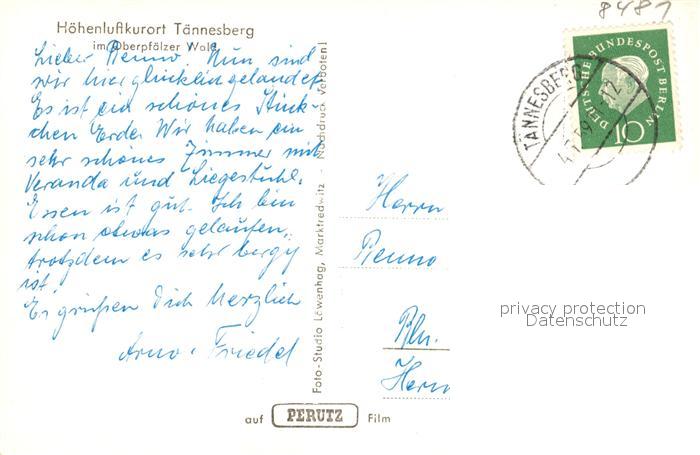 8481
Höhenluftkurort Tännesberg
im Oberpfälzer Wald
Lieber Benno. Nun sind
wir hier glücklich gelandet.
Es ist ein schönes Stück-
chen Erde. Wir haben ein
sehr schönes Zimmer mit
Veranda und Liegestühle.
Essen ist gut. Ich bin
schon etwas gelaufen,
trotzdem es sehr bergig
ist.
Es grüßen Dich herzlich
Arno + Friedel
Foto-Studio Löwenhag, Marktredwitz - Nachdruck verboten!
auf PERUTZ Film
DEUTSCHE BUNDESPOST BERLIN
10
TÄNNESBERG
Herrn
Benno
Bln.
Herm
privacy protection
Datenschutz